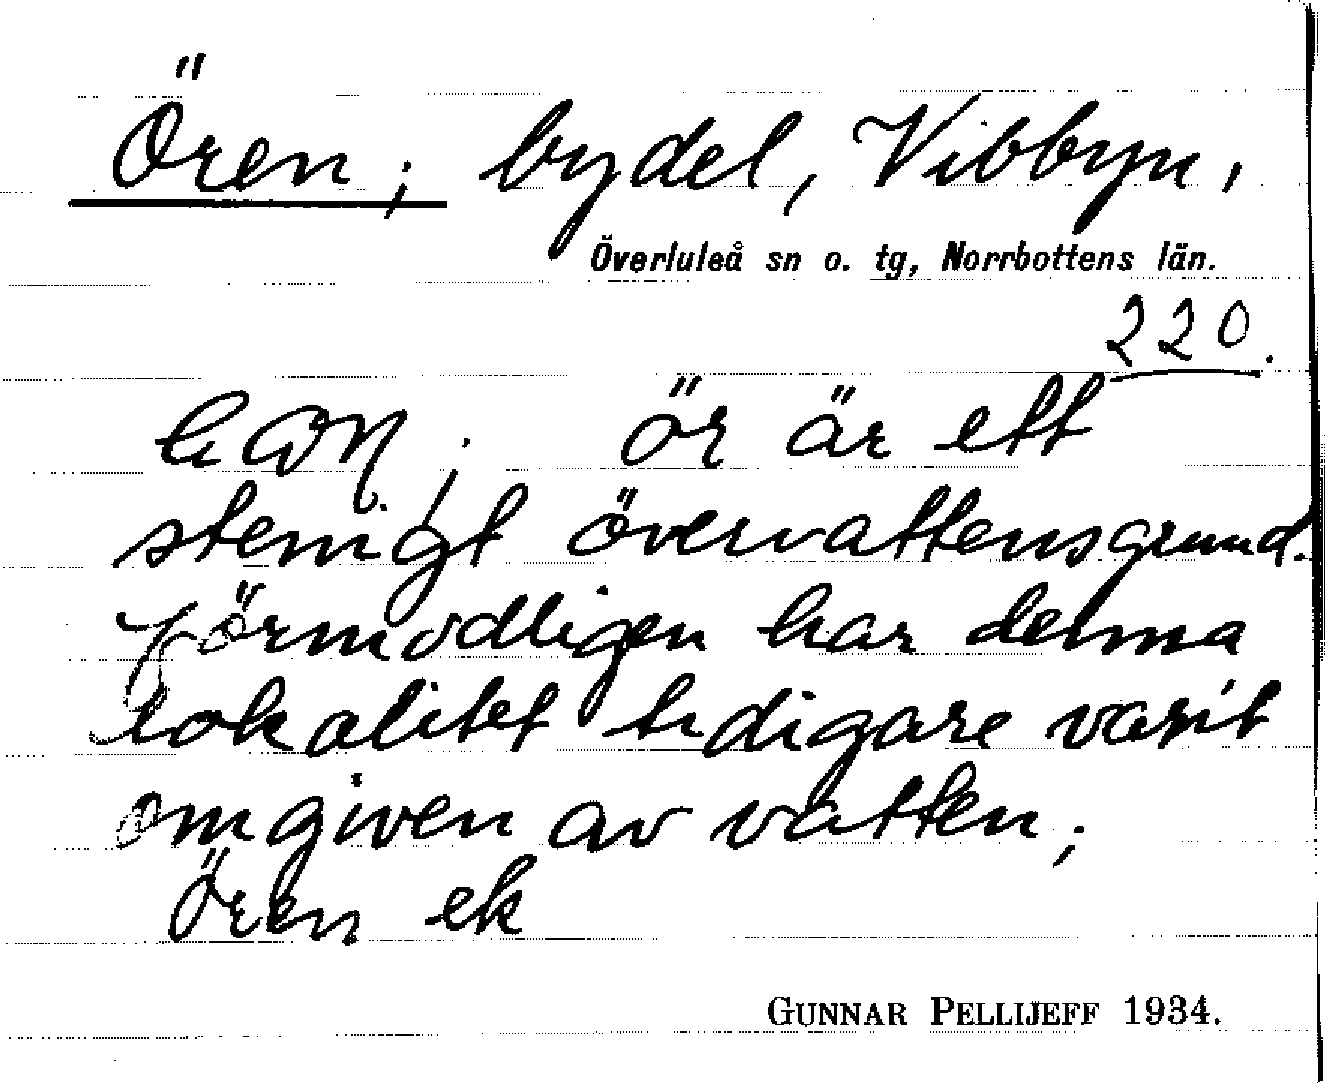 Ören; bydel, Vibbyn,
Överluleå sn o. tg, Norrbottens län.
220.
ör är ett
stenigt övervattensgrund.
förmodligen har denna
lokalitet tidigare varit
omgiven av vatten;
Ören ek
GUNNAR PELLIJEFF 1934.